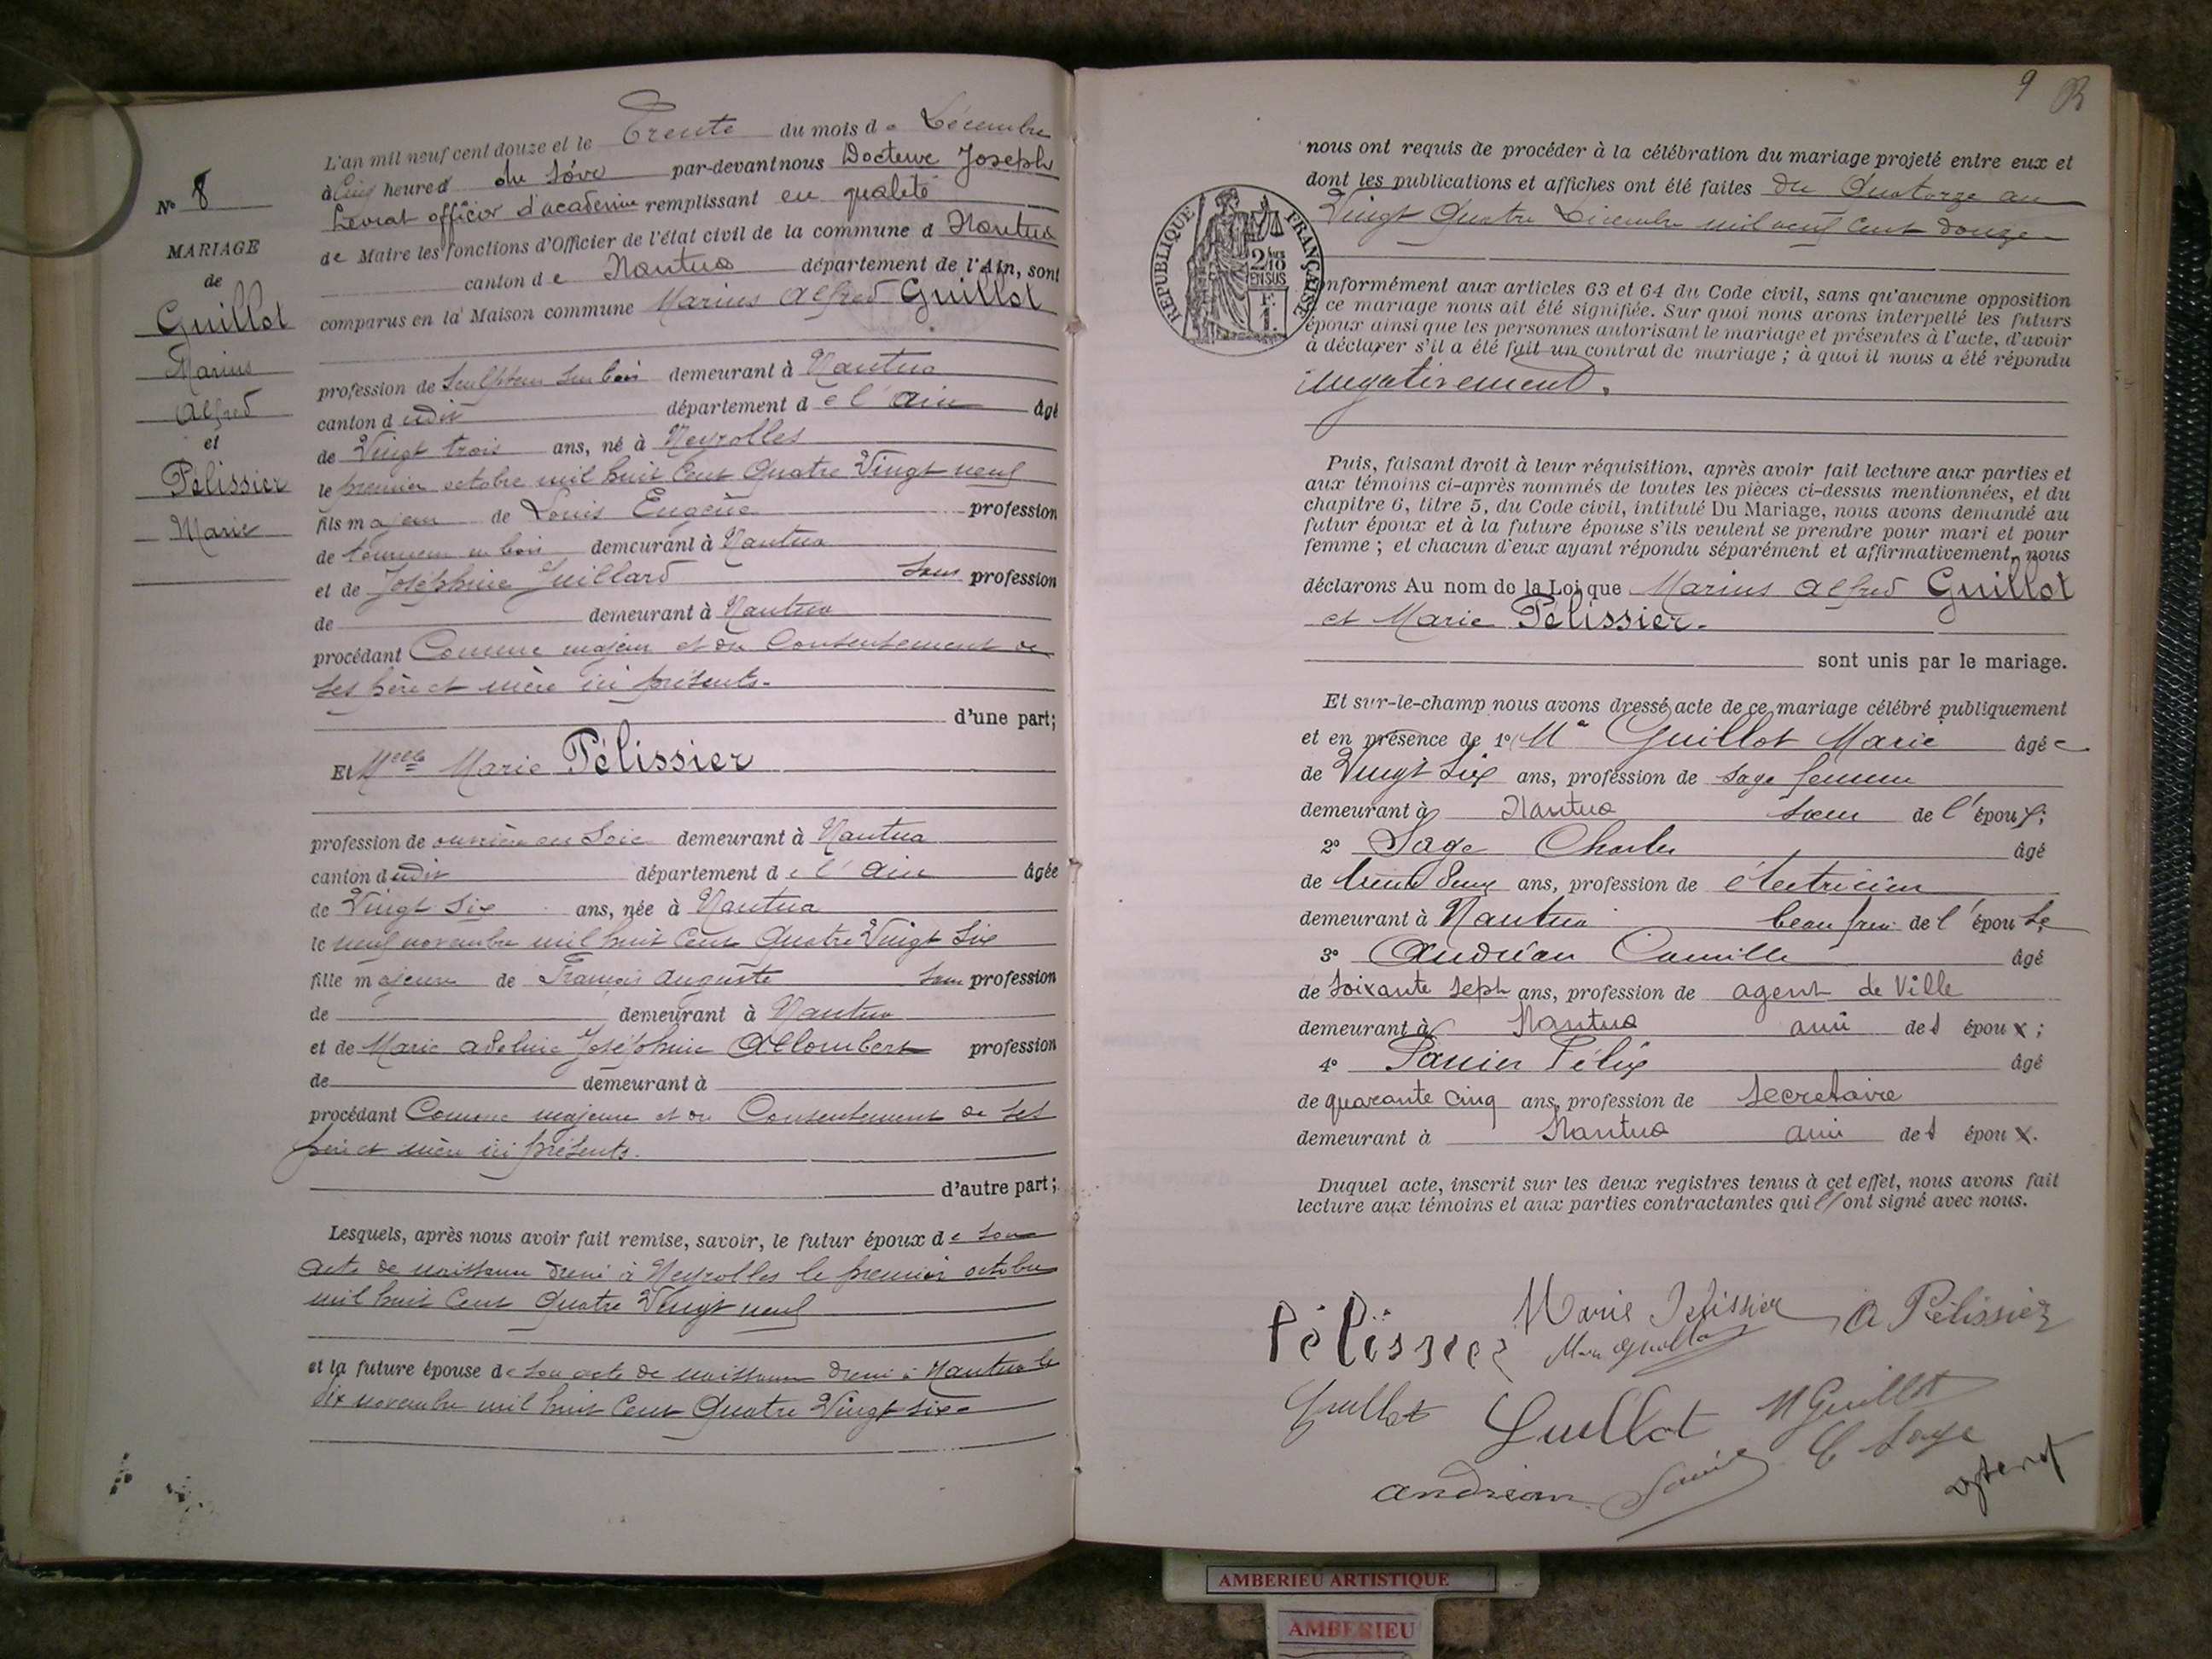 L'an mil neuf cent douze et le Trente du mois de Décembre
à Cinq heures du soir par-devant nous Docteur Joseph
Levrat officier d'académie remplissant en qualité
de Maire les fonctions d'Officier de l'état civil de la commune d Nantua
canton de Nantua département de l'Ain, sont
comparus en la Maison commune Marius Alfred Guillot
profession de Sculpteur sur bois demeurant à Nantua
canton dudit département de l'Ain âgé
de Vingt trois ans, né à Neyrolles
le premier octobre mil huit Cent Quatre Vingt neuf
fils majeur de Louis Eugène profession
de tourneur en bois demeurant à Nantua
et de Joséphine Juillard Sans profession
de demeurant à Nantua
procédant Comme majeur et du Consentement de
ses père et mère ici présents.
d'une part;
Et Melle Marie Pélissier
profession de ouvrière en Soie demeurant à Nantua
canton dudit département de l'Ain âgée
de Vingt Six ans, née à Nantua
le neuf novembre mil huit Cent Quatre Vingt Six
fille majeure de François Auguste Sans profession
de demeurant à Nantua
et de Marie Adeline Joséphine Allombert profession
de demeurant à
procédant Comme majeure et du Consentement de ses
père et mère ici présents.
d'autre part;
Lesquels, après nous avoir fait remise, savoir, le futur époux de son
acte de naissance dressé à Neyrolles le premier octobre
mil huit Cent Quatre Vingt neuf
et la future épouse de son acte de naissance dressé à Nantua le
dix novembre mil huit Cent Quatre Vingt six
N° 8
MARIAGE
de
Guillot
Marius
Alfred
et
Pélissier
Marie
9
nous ont requis de procéder à la célébration du mariage projeté entre eux et
dont les publications et affiches ont été faites du Quatorze au
Vingt Quatre Décembre mil neuf Cent douze
RÉPUBLIQUE FRANÇAISE
2/10
EN SUS
F.
1.
onformément aux articles 63 et 64 du Code civil, sans qu'aucune opposition
ce mariage nous ait été signifiée. Sur quoi nous avons interpellé les futurs
époux ainsi que les personnes autorisant le mariage et présentes à l'acte, d'avoir
à déclarer s'il a été fait un contrat de mariage; à quoi il nous a été répondu
négativement.
Puis, faisant droit à leur réquisition, après avoir fait lecture aux parties et
aux témoins ci-après nommés de toutes les pièces ci-dessus mentionnées, et du
chapitre 6, titre 5, du Code civil, intitulé Du Mariage, nous avons demandé au
futur époux et à la future épouse s'ils veulent se prendre pour mari et pour
femme; et chacun d'eux ayant répondu séparément et affirmativement, nous
déclarons Au nom de la Loi que Marius Alfred Guillot
et Marie Pélissier.
sont unis par le mariage.
Et sur-le-champ nous avons dressé acte de ce mariage célébré publiquement
et en présence de 1° Guillot Marie âgée
de Vingt Six ans, profession de Sage femme
demeurant à Nantua sœur de l'époux;
2° Sage Charles âgé
de trente deux ans, profession de électricien
demeurant à Nantua beau frère de l'épouse
3° Andréan Camille âgé
de soixante sept ans, profession de agent de Ville
demeurant à Nantua ami des époux;
4° Félix âgé
de quarante cinq ans, profession de secretaire
demeurant à Nantua ami des époux.
Duquel acte, inscrit sur les deux registres tenus à cet effet, nous avons fait
lecture aux témoins et aux parties contractantes qui l'ont signé avec nous.
Pélissier Marie Pelissier A Pélissier
Guillot Guillot M Guillot
C Sage
andrean
AMBERIEU ARTISTIQUE
AMBERIEU